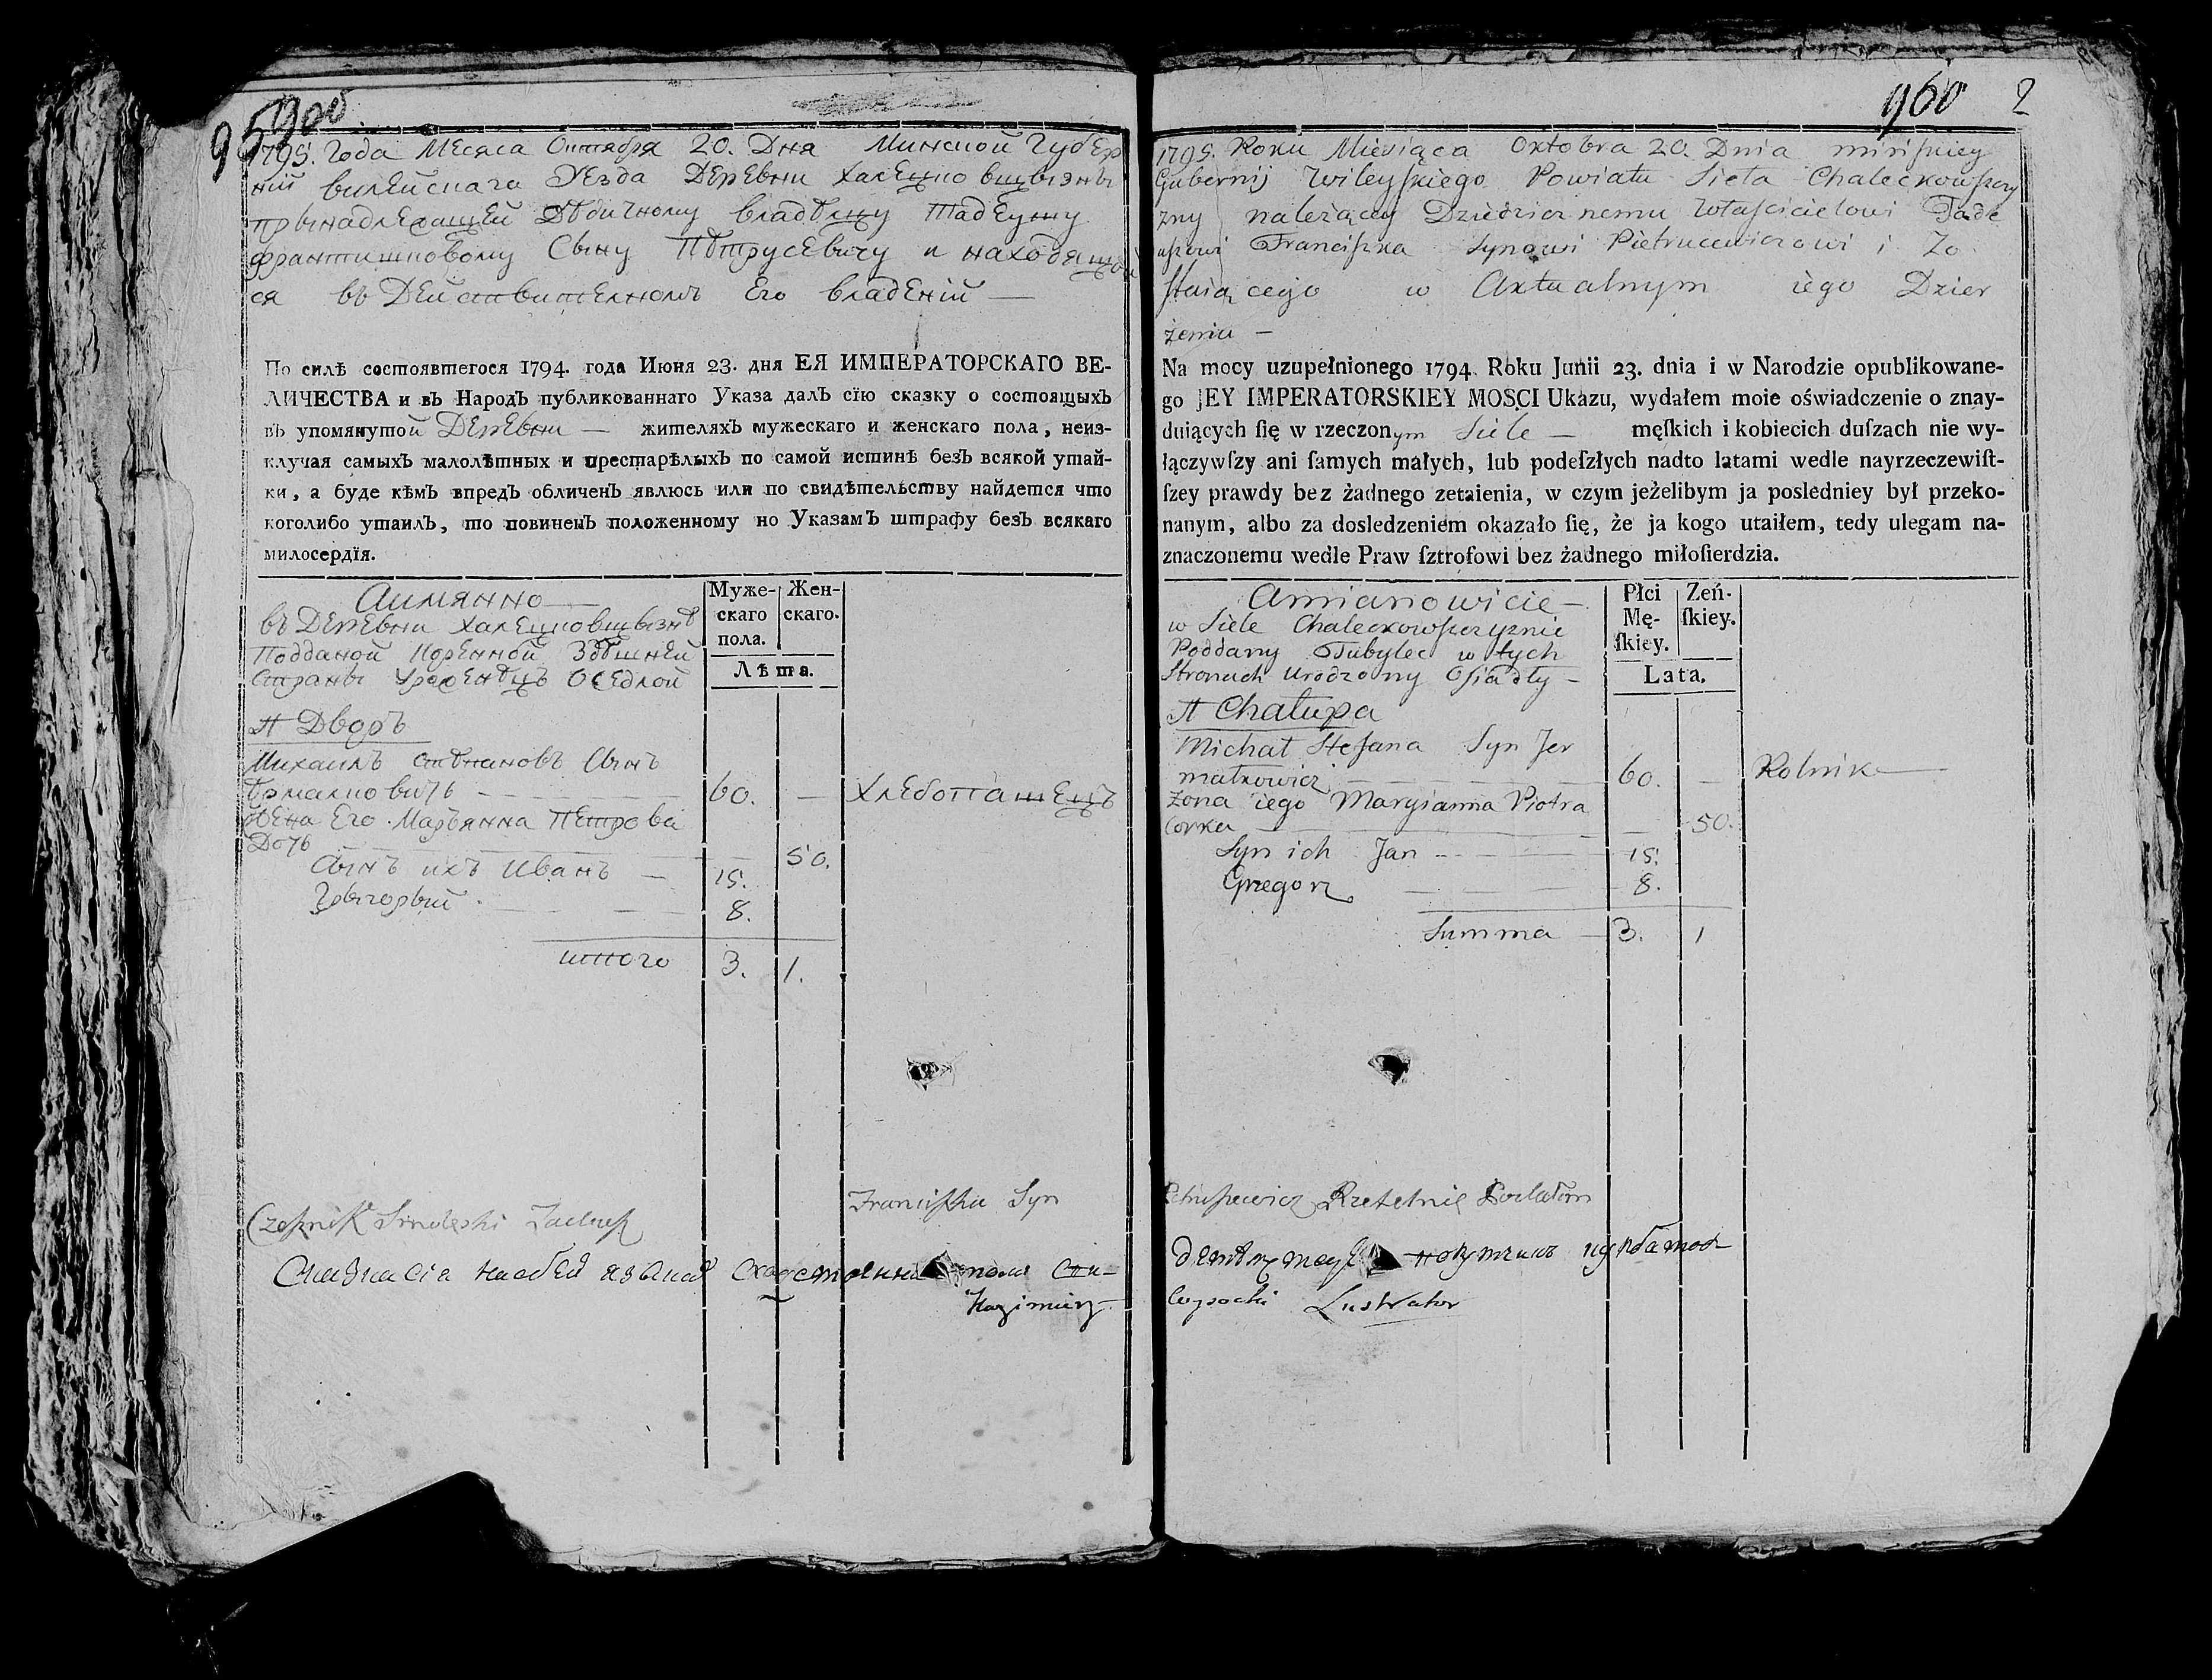 1795. Года Месяса Октября 20. Дня Минской Губер
ній вилейскаго Уезда Деревни Халецковщызны
прынадлежащей Дѣдичному владѣлцу Тадеушу
францишковому Сыну Пѣтрусевичу и находящой
ся въ Действителномъ Его владеній —
По силѣ состоявшегося 1794. года Июня 23. дня ЕЯ ИМПЕРАТОРСКАГО ВЕ-
ЛИЧЕСТВА и въ Народъ публикованнаго Указа далъ сїю сказку о состоящыхъ
въ упомянутой Деревни — жителяхъ мужескаго и женскаго пола, неиз-
ключая самыхъ малолѣтныхъ и престарѣлыхъ по самой истинѣ безъ всякой утай-
ки, а буде кѣмъ впредъ обличенъ явлюсь или по свидѣтельству найдется что
коголибо утаилъ, то повиненъ положенному по Указамъ штрафу безъ всякаго
милосердїя.
Аимянно —
въ Деревни Халецковщызнѣ
Подданой Коренной Здѣшней
Страны Уроженѣцъ Оседлой
Муже-
скаго
пола.
Жен-
скаго.
Лѣта.
А Дворъ
Михаилъ Стѣпановъ Сынъ
Ермаковичь — 60. — Хлебопашецъ
Жена Его Марьянна Петрова
Дочь — 50.
Сынъ ихъ Иванъ — 15.
Грыгорый — 8.
итого 3. 1.
Franciſzka Syn
960 2
1795. Roku Miesiąca Oktobra 20. Dnia minſkiey
Gubernij Wileyſkiego Powiatu Sieła Chaleckowſzczy
zny należącey Dziedzicznemu Właſcicielowi Tade
uſzowi Franciſzka Synowi Pietrucewiczowi i Zo
ſtaiącego w Aktualnym iego Dzier
żeniu —
Na mocy uzupełnionego 1794. Roku Junii 23. dnia i w Narodzie opublikowane-
go JEY IMPERATORSKIEY MOSCI Ukazu, wydałem moie oświadczenie o znay-
duiących ſię w rzeczonym Siele — męſkich i kobiecich duſzach nie wy-
łączywſzy ani ſamych małych, lub podeſzłych nadto latami wedle nayrzeczewiſt-
ſzey prawdy bez żadnego zetaienia, w czym jeżelibym ja posledniey był przeko-
nanym, albo za dosledzeniem okazało ſię, że ja kogo utaiłem, tedy ulegam na-
znaczonemu wedle Praw ſztrofowi bez żadnego miłoſierdzia.
Amianowicie —
w Siele Chaleckowſzczyznie
Poddany Tubylec w tych
Stronach Urodzony Oſiadły —
Płci
Mę-
ſkiey.
Żeń-
ſkiey.
Lata.
A Chałupa
Michał Stefana Syn Jer
makowicz — 60. — Rolnik —
Zona iego Maryianna Piotra
Corka — 50.
Syn ich Jan — 15.
Grzegorz — 8.
Summa — 3. 1
Rzetelnie Podałem
Kazimierz
Wysocki Lustrator